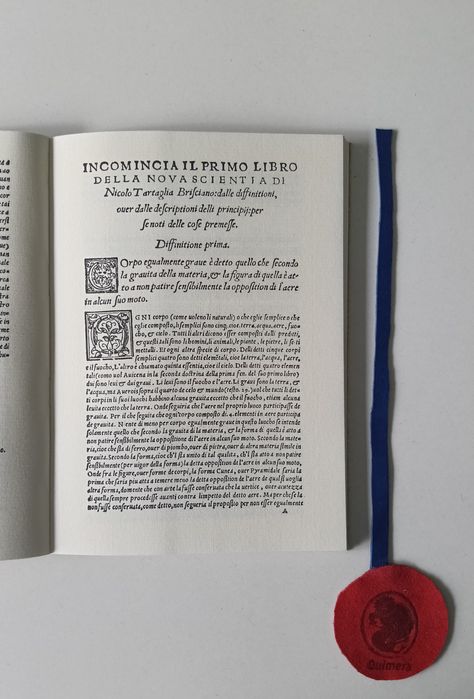 INCOMINCIA IL PRIMO LIBRO
DELLA NOVA SCIENTIA DI
Nicolo Tartaglia Brisciano: dalle diffinitioni,
ouer dalle descriptioni delli principij: per
se noti delle cose premesse.
Diffinitione prima.
COrpo egualmente graue è detto quello che secondo
la grauita della materia, & la figura di quella è at-
to a non patire sensibilmente la opposition di l'aere
in alcun suo moto.
OGNI corpo (come uoleno li naturali) o che egli è semplice o che
egli è composto, li semplici sono cinq; cioe, terra, acqua, aere, fuo-
cho, & cielo. Tutti li altri dicono esser composti dalli predetti,
& questi tali sono li homini, li animali, le piante, le pietre, li se-
mettalli. Et ogni altra specie di corpo. Delli detti cinque corpi
semplici quatro sono detti elementi, cioe la terra, l'acqua, l'aere,
e il fuocho. L'altro è chiamato quinta essentia, cioe il cielo. Delli detti quatro elemen
tali (como uol Auicena in la seconda doctrina della prima fen. del suo primo libro)
dui sono leui & dui graui. Li leui sono il fuocho e l'aere. Li graui sono la terra, &
l'acqua, ma Auerois sopra il quarto de celo & mundo
corpi in li suoi luochi habbino alcuna grauita eccetto che il fuocho, etiam alcuna
leuita eccetto che la terra. Onde seguiria che l'aere nel proprio luoco participasse de
grauita. Per il che seguita che ogni corpo composto di 4. elementi in aere participa
de grauita. Nente di meno per corpo egualmente graue in questo luocho se intende
solamente quello che secondo la grauita della materia, & la forma di quella è atto a
non patire sensibilmente la opposition de l'aere in alcun suo moto. Secondo la mate-
ria, cioe che sia di ferro, ouer di piombo, ouer di pietra, ouer de altra materia simile in
grauita. Secondo la forma, cioe ch'l sia unito di tal qualita, ch'l sia atto a non patire
sensibelmente (per uigor della forma) la detta opposition de l'aere in alcun suo moto.
Onde fra le figure, ouer forme de corpi, la forma Cunea, ouer Pyramidale saria la
prima che saria piu atta a temere meno la detta opposition de l'aere de qual si uoglia
altra forma, domente che con arte la fusse conseruata che la uertice, ouer acutezza
di quella sempre procedesse auanti contra l'impeto del detto aere. Ma perche se la
non fusse conseruata, come detto, non segueria il proposito per non esser egualmente
A
Quimera